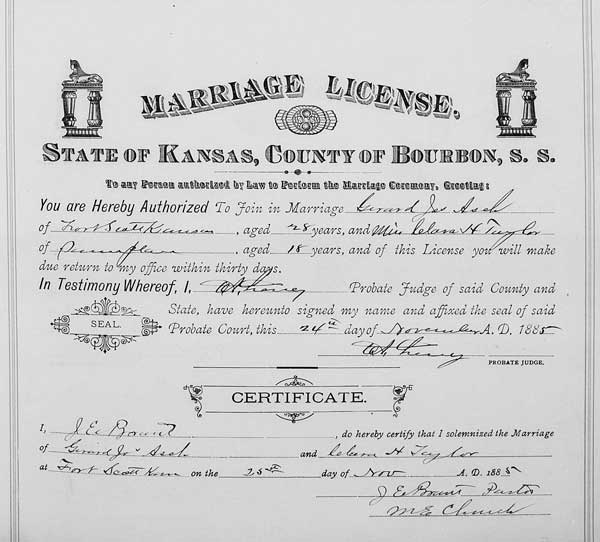 MARRIAGE LICENSE.
STATE OF KANSAS, COUNTY OF BOURBON, S. S.
To any Person authorized by Law to Perform the Marriage Ceremony, Greeting:
You are Hereby Authorized To Join in Marriage Gerard Jos Asch
of Fort Scott Kansas, aged 28 years, and Miss Clara H Taylor
of , aged 18 years, and of this License you will make
due return to my office within thirty days.
In Testimony Whereof, I, Probate Judge of said County and
State, have hereunto signed my name and affixed the seal of said
SEAL.
Probate Court, this 24th day of November A. D. 1885
PROBATE JUDGE.
CERTIFICATE.
I, J E Brant, do hereby certify that I solemnized the Marriage
of Gerard Jos Asch and Clara H Taylor
at Fort Scott Kan on the 25th day of Nov A. D. 1885
J E Brant Pastor
M E Church